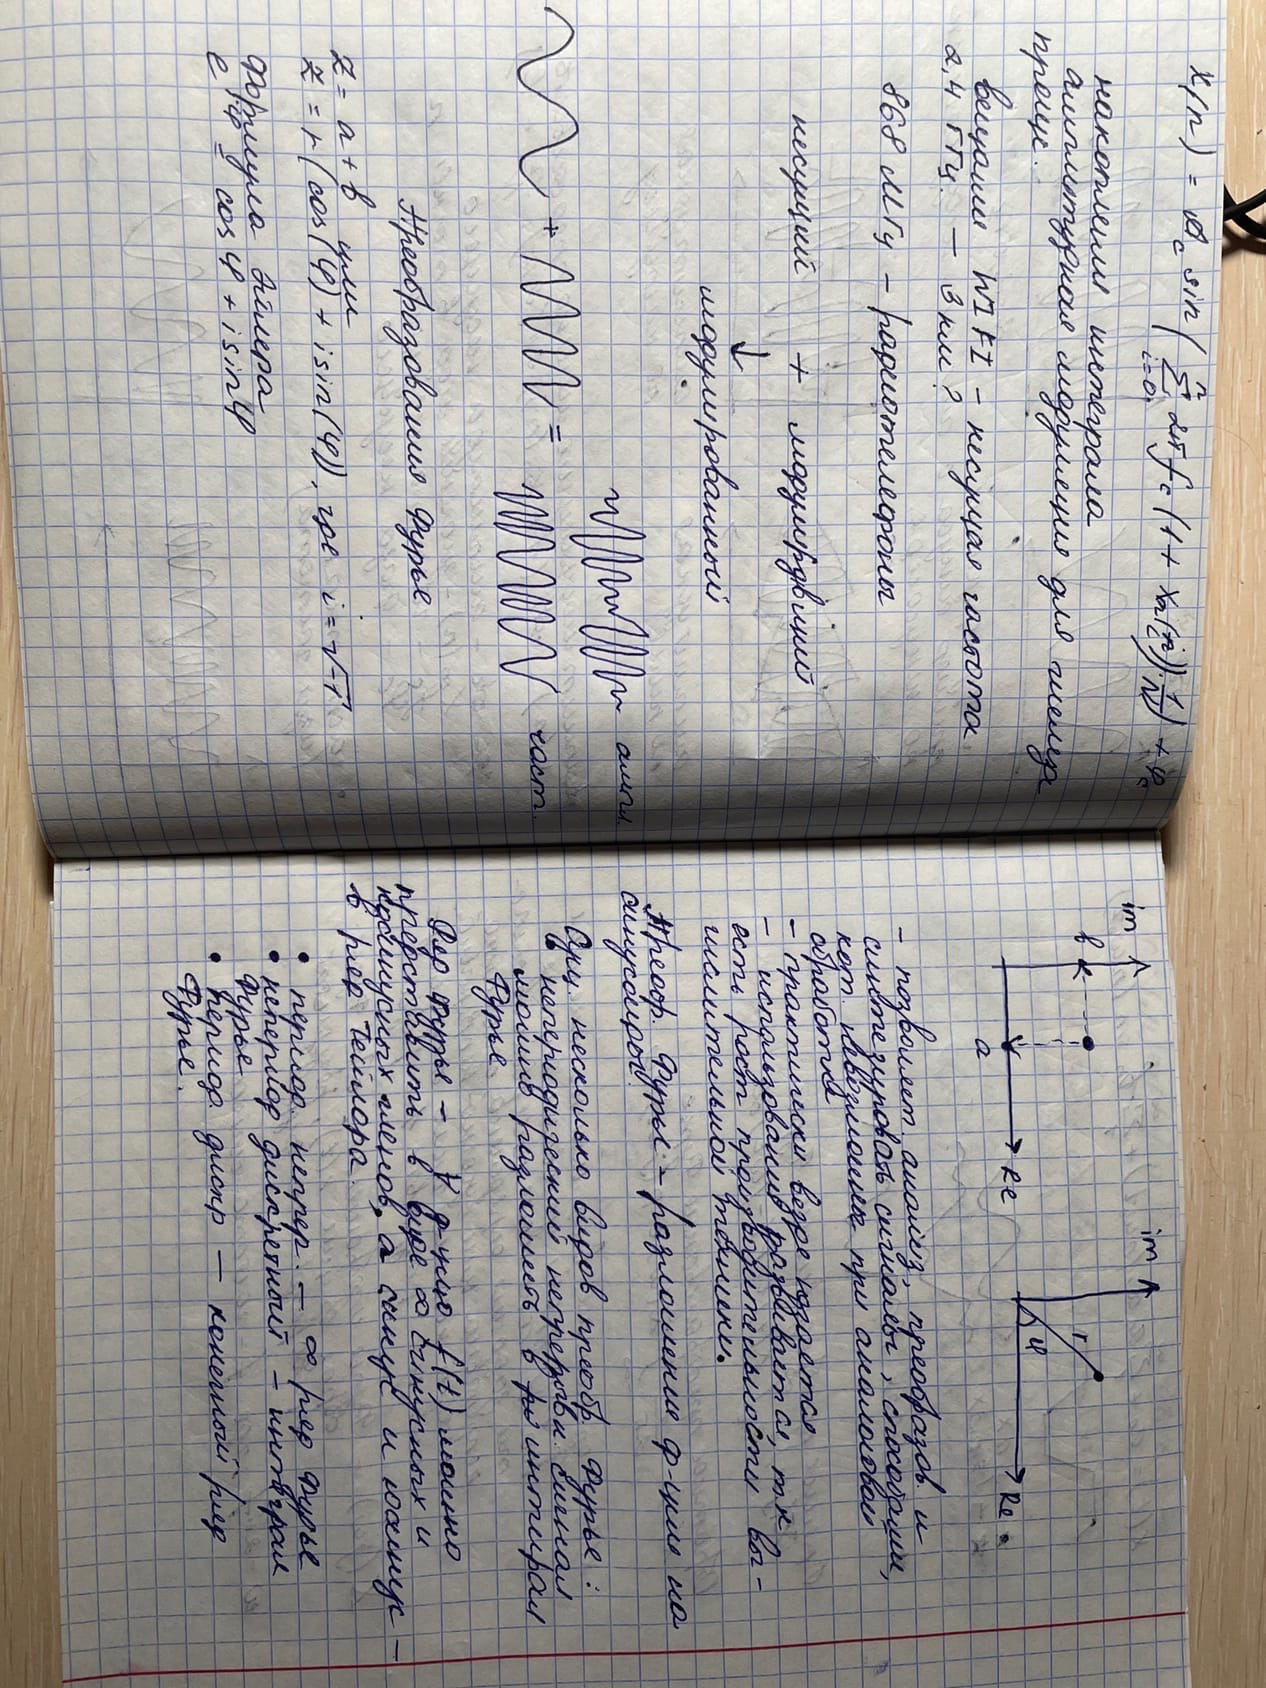 x(n) = A_c sin( Σ_{i=0}^{n} 2π f_c (1 + x_m(i)) · 1/N ) + φ_c
накопление интеграла
амплитудная модуляция для железа
проще.
вещание WIFI – несущая частота
2,4 ГГц. — 3 км?
868 МГц – радиотелефоны
несущий + модулирующий
↓
модулированный
ампл.
+ =
част.
Преобразования Фурье
z = a + b или
z = r(cos(φ) + i sin(φ)), где i = √-1
Формула Эйлера
e^{iφ} = cosφ + i sinφ
im im
b r
φ
Re Re
a
– позволяет анализ, преобразов. и
синтезировать сигналы, способами,
кот. невозможны при аналоговой
обработке
– практически везде юзается
– использование развивается, т к
есть рост производительности вы-
числительной техники.
Преобр. Фурье – разложение ф-ции на
синусоиды.
Сущ. несколько видов преобр. Фурье:
• непериодический непрерывн. сигнал
можно разложить в интеграл
Фурье.
Ряд Фурье – ∀ ф-цию f(t) можно
представить в виде ∞ синусных и
косинусных членов, а синус и косинус –
в ряд Тейлора.
• период. непрер. – ∞ ряд Фурье
• непериод дискретный – интеграл
Фурье
• период. дискр — конечный ряд
Фурье.